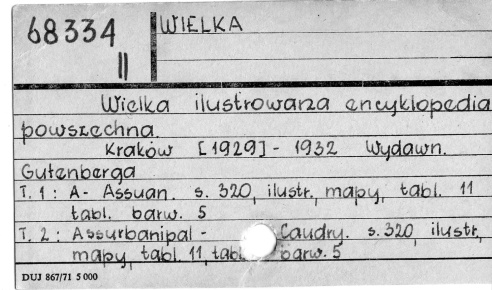 68334
II
WIELKA
Wielka ilustrowana encyklopedia
powszechna.
Kraków [1929] - 1932 Wydawn.
Gutenberga
T. 1 : A - Assuan. s. 320, ilustr., mapy, tabl. 11
tabl. barw. 5
T. 2 : Assurbanipal - Caudry. s. 320, ilustr,
mapy, tabl. 11, tabl. barw. 5
DUJ 867/71 5 000